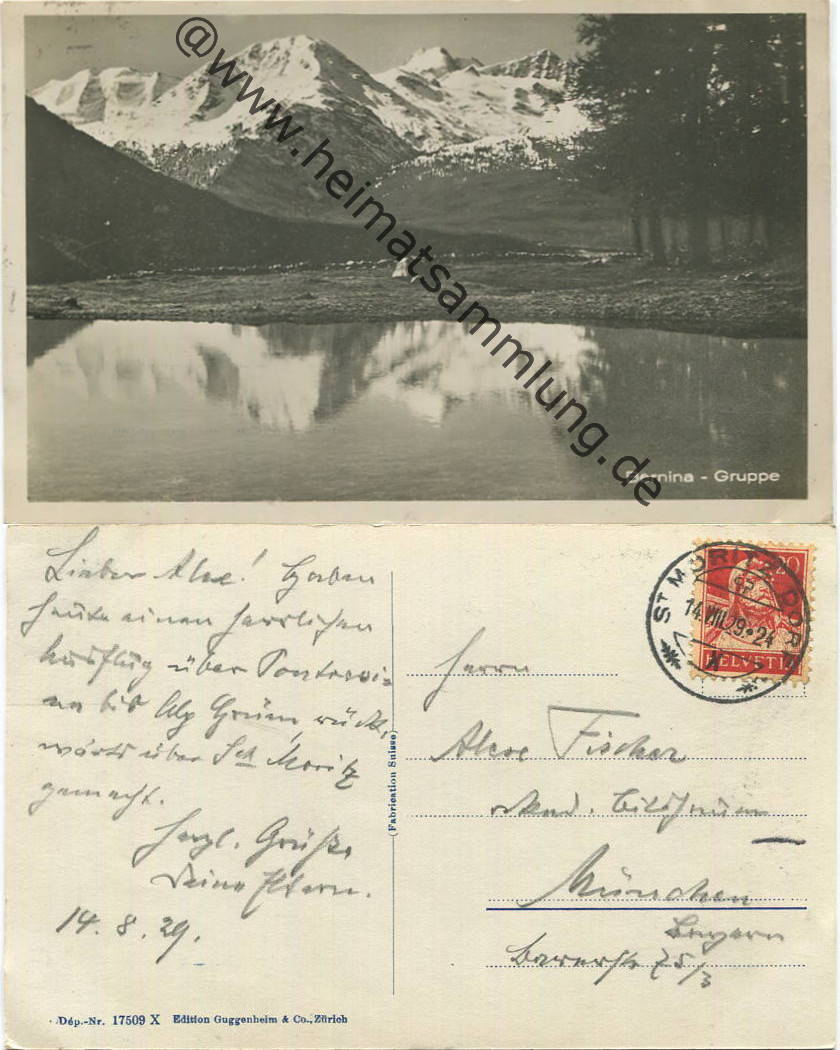 @www.heimatsammlung.de
Bernina - Gruppe
Lieber Alex! Haben
heute einen herrlichen
Ausflug über Pontresi-
na bis Alp Grüm, rück-
wärts über Sct Moritz
gemacht.
Herzl. Grüße
Deine Eltern.
14. 8. 29.
Dép.-Nr. 17509 X Edition Guggenheim & Co., Zürich
(Fabrication Suisse)
ST MORITZ DORF
14.VIII.29-24
X
20
HELVETIA
Herrn
Fischer
München
Bayern
75/3